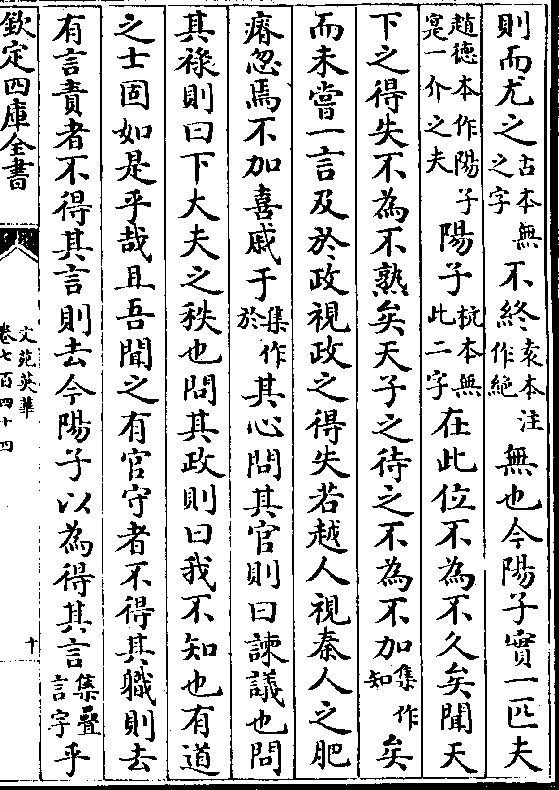 則而尤之古本無之字不終袁本注作絶無也今陽子實一匹夫
趙德本作陽子寔一介之夫陽子杭本無此二字在此位不為不久矣聞天
下之得失不為不熟矣天子之待之不為不加集作知矣
而未嘗一言及於政視政之得失若越人視秦人之肥
瘠忽焉不加喜戚于集作於其心問其官則曰諫議也問
其祿則曰下大夫之秩也問其政則曰我不知也有道
之士固如是乎哉且吾聞之有官守者不得其職則去
有言責者不得其言則去今陽子以為得其言集疊言字乎
欽定四庫全書
文苑英華
卷七百四十四
十